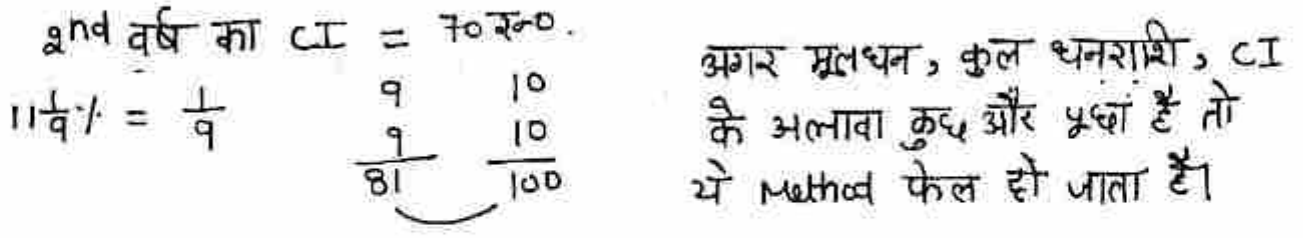 2nd वर्ष का CI = 70 रू0.
11 1/9 % = 1/9
9 10
9 10
81 100
अगर मूलधन, कुल धनराशि, CI
के अलावा कुछ और पूछां है तो
ये Method फेल हो जाता है।